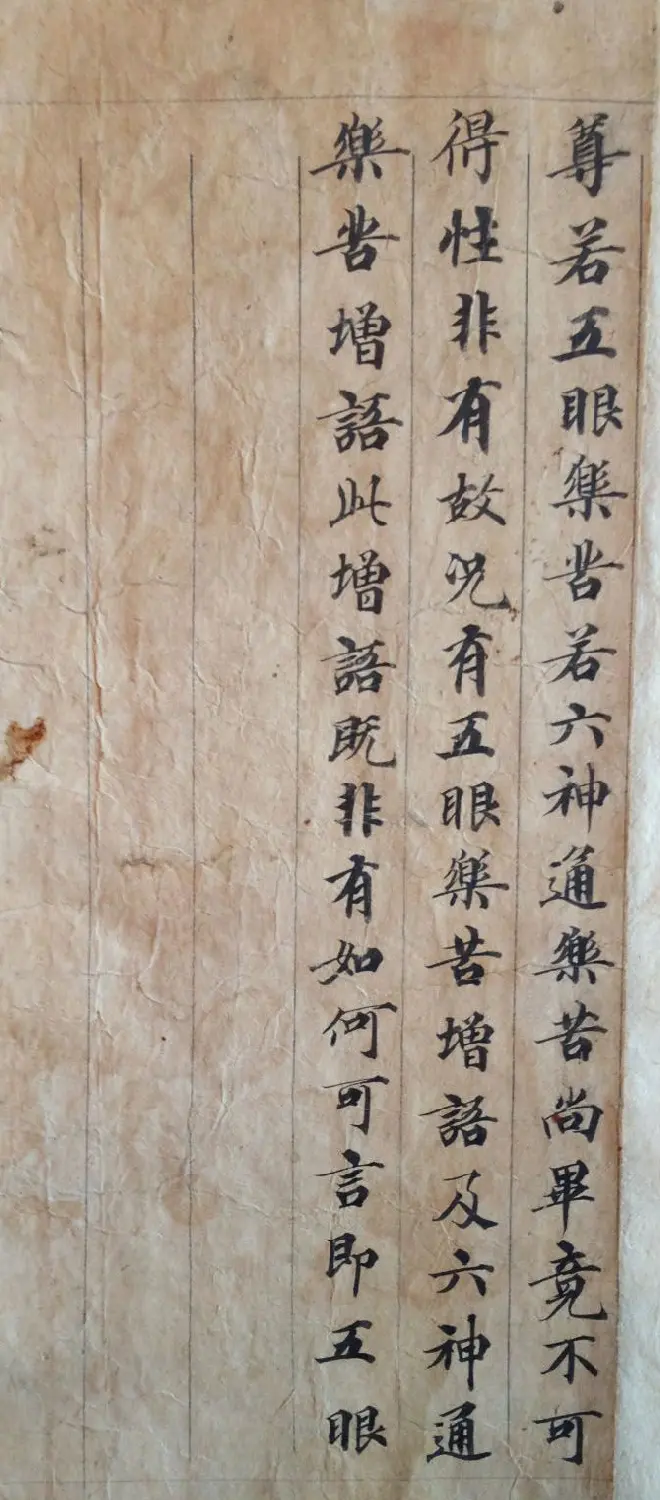 尊若五眼樂苦若六神通樂苦尚畢竟不可
得性非有故况有五眼樂苦增語及六神通
樂苦增語此增語既非有如何可言即五眼